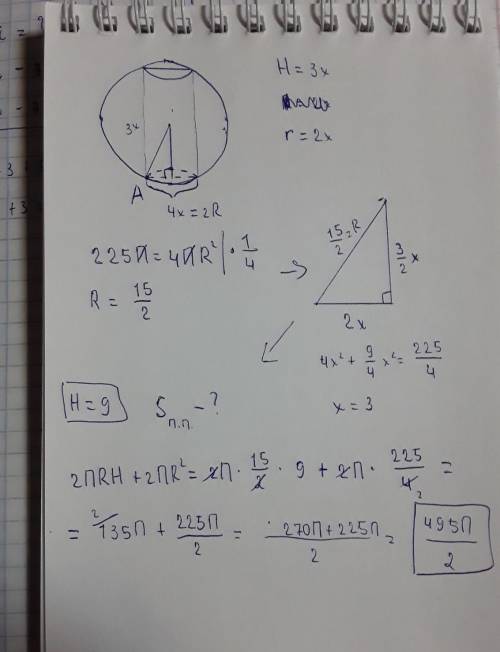 H = 3x
r = 2x
3x
A
4x = 2R
225П = 4ПR² | · 1/4
R = 15/2
15/2 = R
3/2 x
2x
4x² + 9/4 x² = 225/4
x = 3
H = 9
Sп.п. - ?
2ПRH + 2ПR² = 2П · 15/2 · 9 + 2П · 225/4 2 =
= 2/ 135П + 225П/2 = 270П + 225П/2 = 495П/2